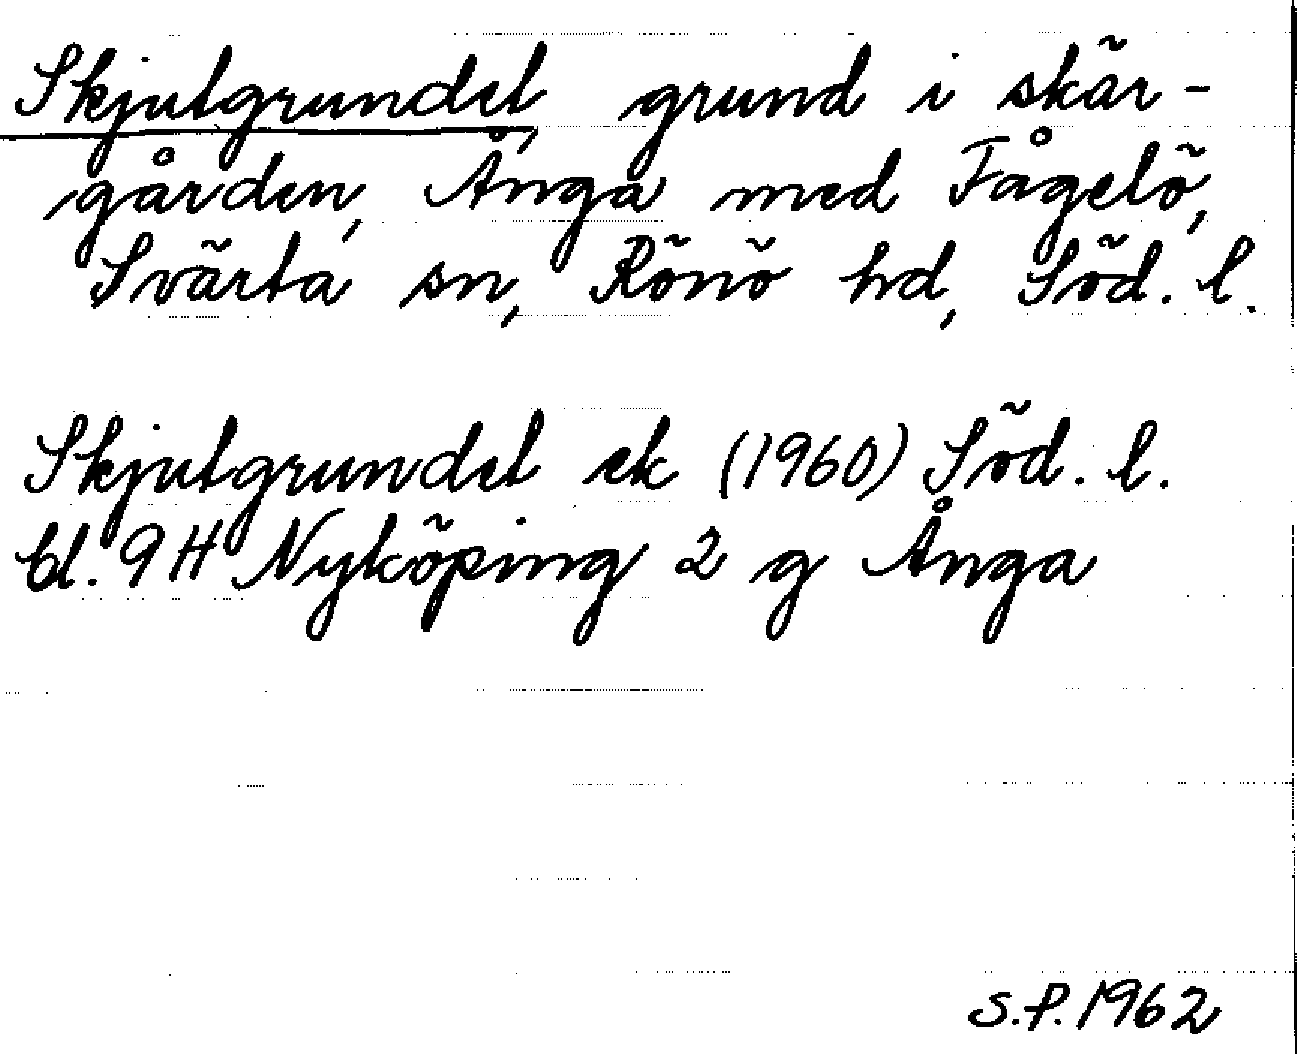 Skjutgrundet grund i skär-
gården, Ånga med Fågelö,
Svärta sn, Rönö hd, Söd. l.
Skjutgrundet ek (1960) Söd. l.
bl. 9 H Nyköping 2 g Ånga
S.P. 1962